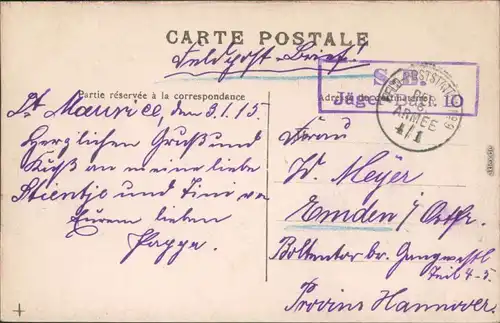 CARTE POSTALE
Feldpost-Brief!
Partie réservée à la correspondance
S.B.
Jäger Batl. 10
FELD-POSTSTATION No 9
DER
ARMEE
4/1
St Maurice, den 3.1.15.
Herzlichen Gruß und
Kuß an meine liebe
Stientje und Tini von
Eurem lieben
Pappa.
Frau
W. Meyer
Emden i/ Ostfr.
Boltentor br. Gangwestl
Teil 4-5.
Provinz Hannover